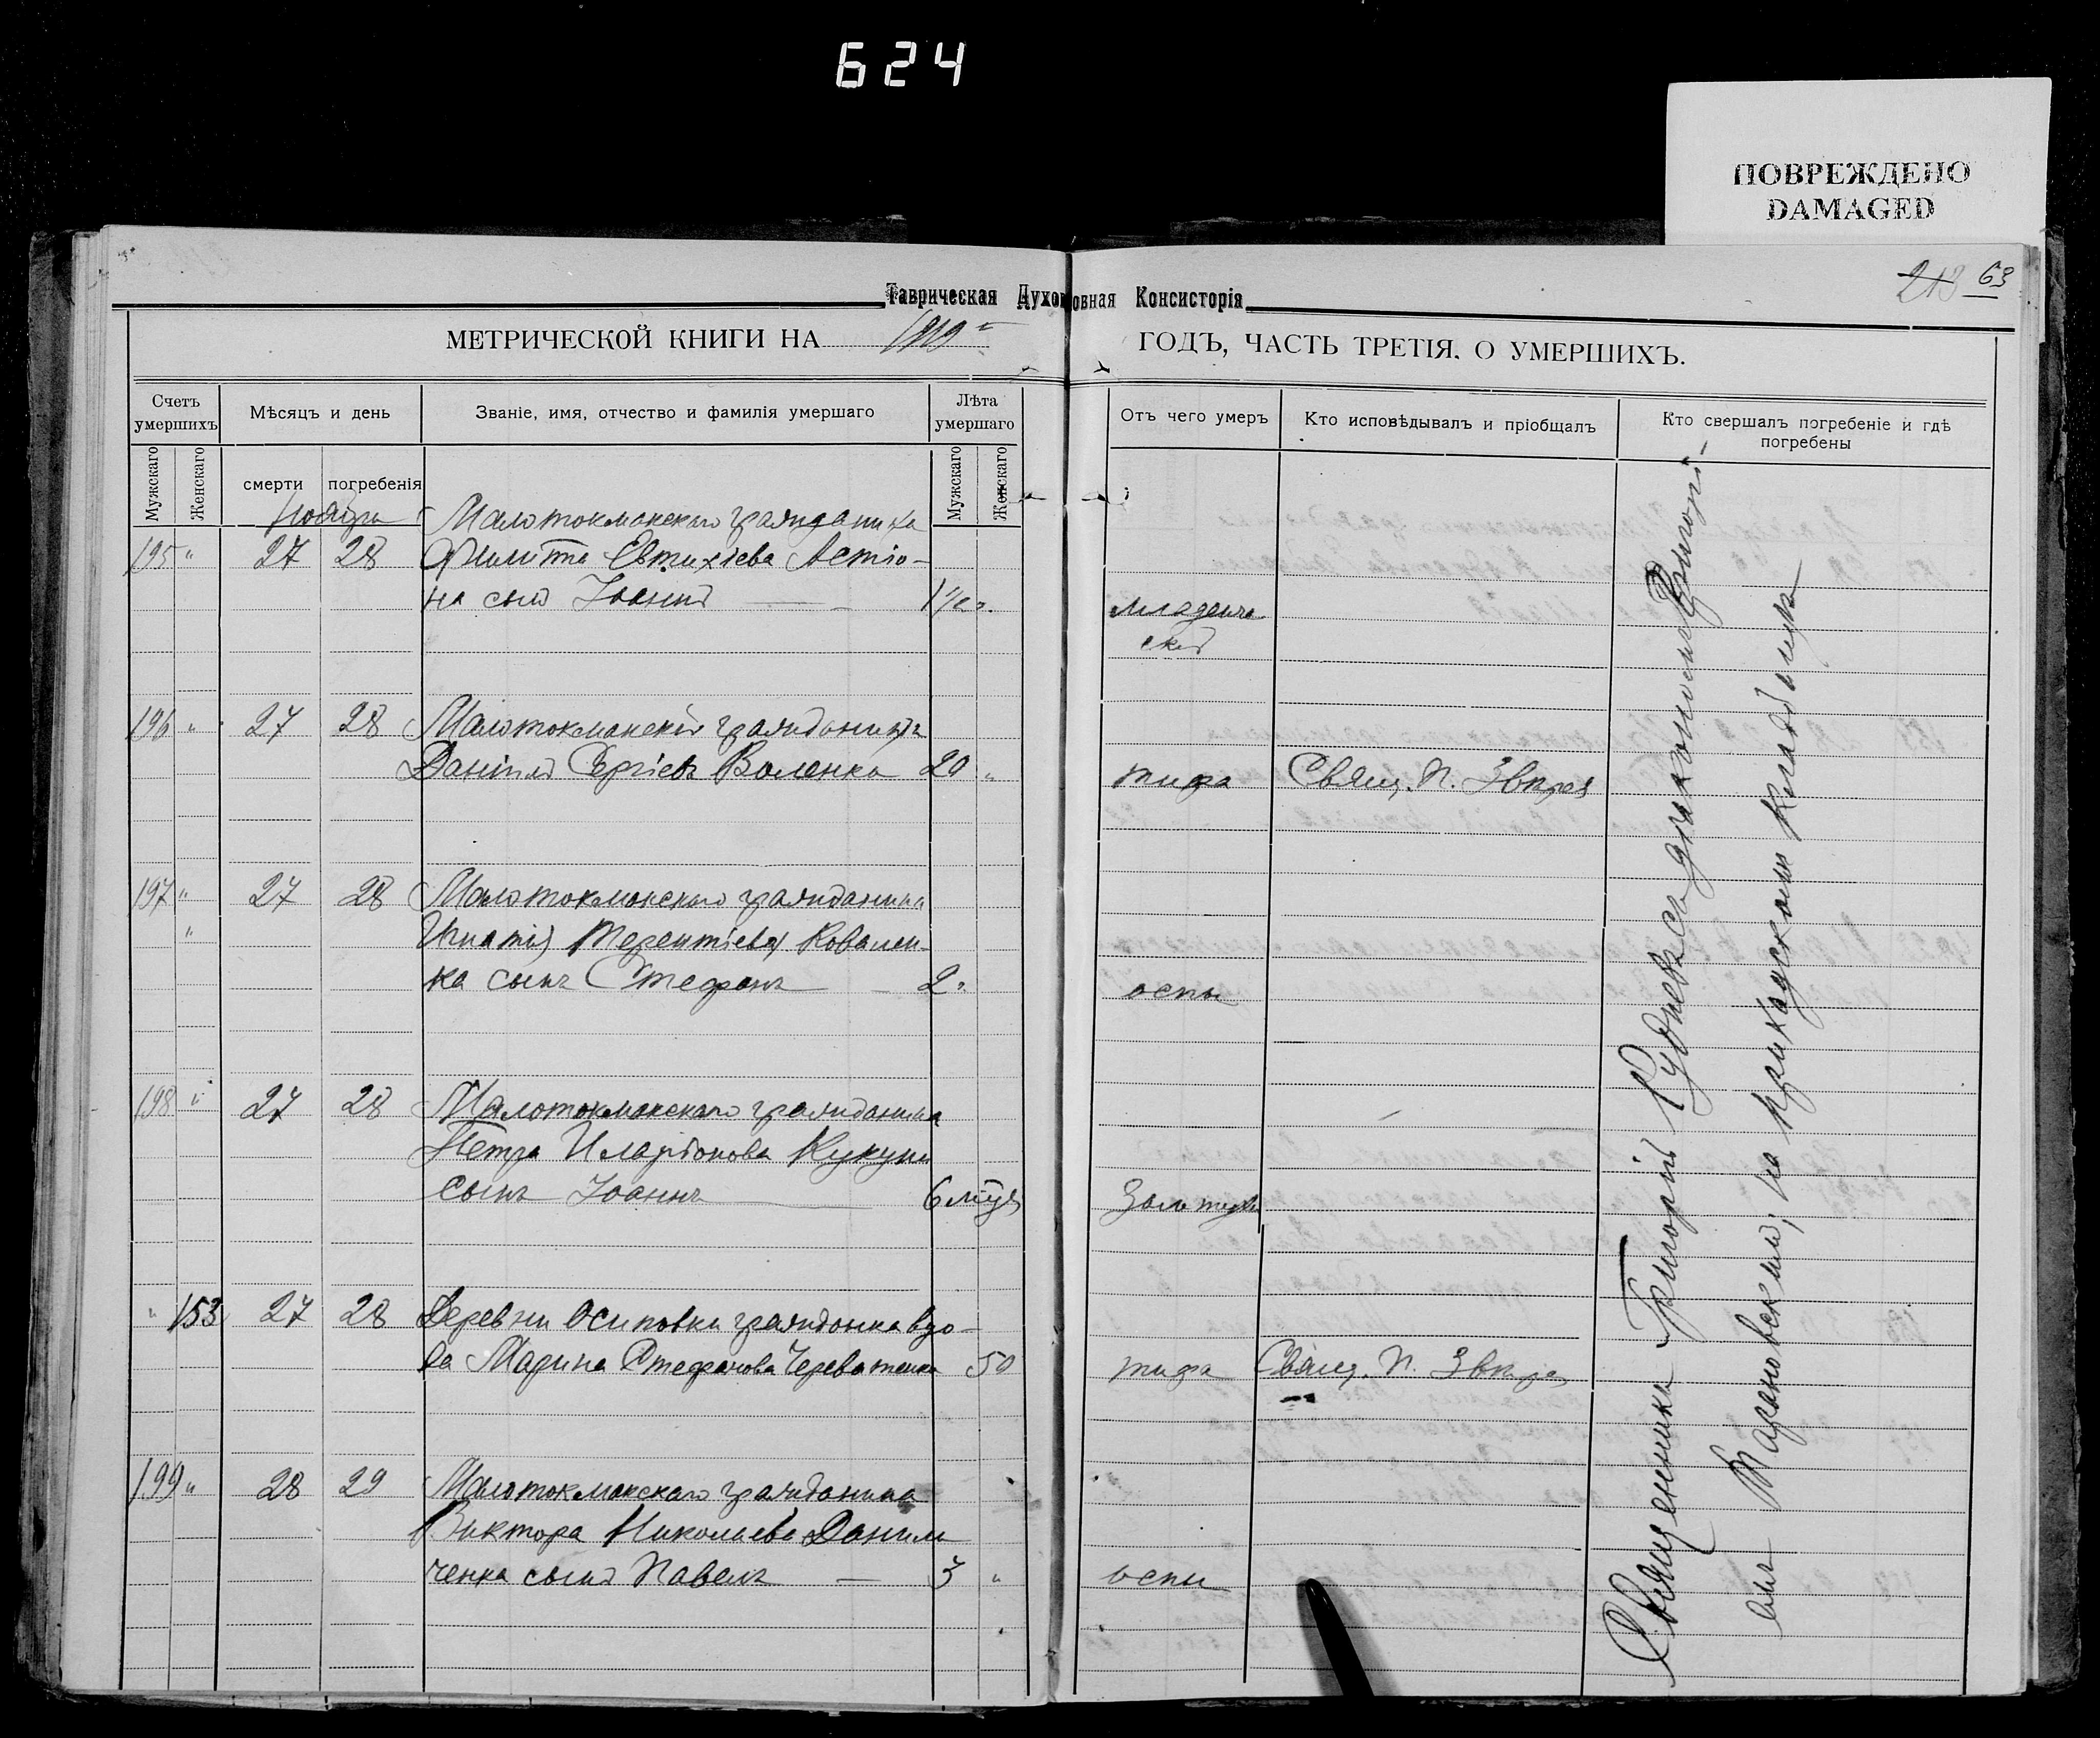 624
ПОВРЕЖДЕНО
DAMAGED
213 63
Таврическая Духовная Консисторія
МЕТРИЧЕСКОЙ КНИГИ НА 1919 ГОДЪ, ЧАСТЬ ТРЕТІЯ. О УМЕРШИХЪ.
Счетъ умершихъ
Мужскаго
Женскаго
Мѣсяцъ и день
смерти
погребенія
Званіе, имя, отчество и фамилія умершаго
Лѣта умершаго
Мужскаго
Женскаго
Отъ чего умеръ
Кто исповѣдывалъ и пріобщалъ
Кто свершалъ погребеніе и гдѣ
погребены
Ноября Малотокмакскаго гражданина
195 " 27 28 Филиппа Евтихіева
на сынъ Іоаннъ 1 1/2 г.
младенче
ской
196 " 27 28 Малотокмакскій гражданинъ
Даніилъ Сергіевъ Воленко 20 " тифа Свящ. П. Звѣрев
197 " 27 28 Малотокмакскаго гражданина
" Игнатія Терентіева Ковален-
ка сынъ Стефанъ 2. оспы
198 " 27 28 Малотокмакскаго гражданина
Петра Иларіонова Кукуны
сынъ Іоаннъ 6 мцъ
" 153 27 28 Деревни Осиповки гражданка вдо-
ва Марина Стефанова Череватенко 50 тифа Свящ. П. Звѣрев
199 " 28 29 Малотокмакскаго гражданина
Виктора Николаева Данил
ченка сынъ Павелъ — 3 " оспы
Священникъ Григорій Руднев съ діакономъ Григорі-
емъ Тарановскимъ, на приходскомъ кладбищѣ